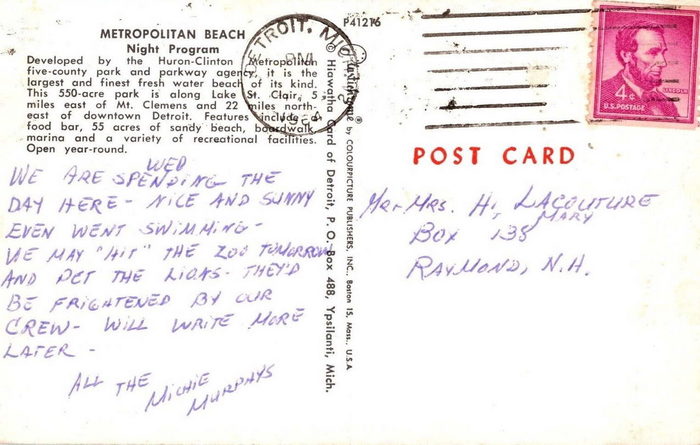 METROPOLITAN BEACH
Night Program
Developed by the Huron-Clinton Metropolitan
five-county park and parkway agency, it is the
largest and finest fresh water beach of its kind.
This 550-acre park is along Lake St. Clair, 5
miles east of Mt. Clemens and 22 miles north-
east of downtown Detroit. Features include a
food bar, 55 acres of sandy beach, boardwalk,
marina and a variety of recreational facilities.
Open year-round.
WED
WE ARE SPENDING THE
DAY HERE - NICE AND SUNNY
EVEN WENT SWIMMING -
WE MAY "HIT" THE ZOO TOMORROW
AND PET THE LIONS - THEY'D
BE FRIGHTENED BY OUR
CREW - WILL WRITE MORE
LATER -
ALL THE
MICHIE
MURPHYS
© Hiawatha Card of Detroit, P. O. Box 488, Ypsilanti, Mich.
by COLOURPICTURE PUBLISHERS, INC., Boston 15, Mass., U.S.A
P41276
DETROIT, MICH
PM
4¢
LINCOLN
U.S. POSTAGE
POST CARD
Mr + Mrs. H. LACOUTURE
MARY
BOX 135
RAYMOND, N.H.